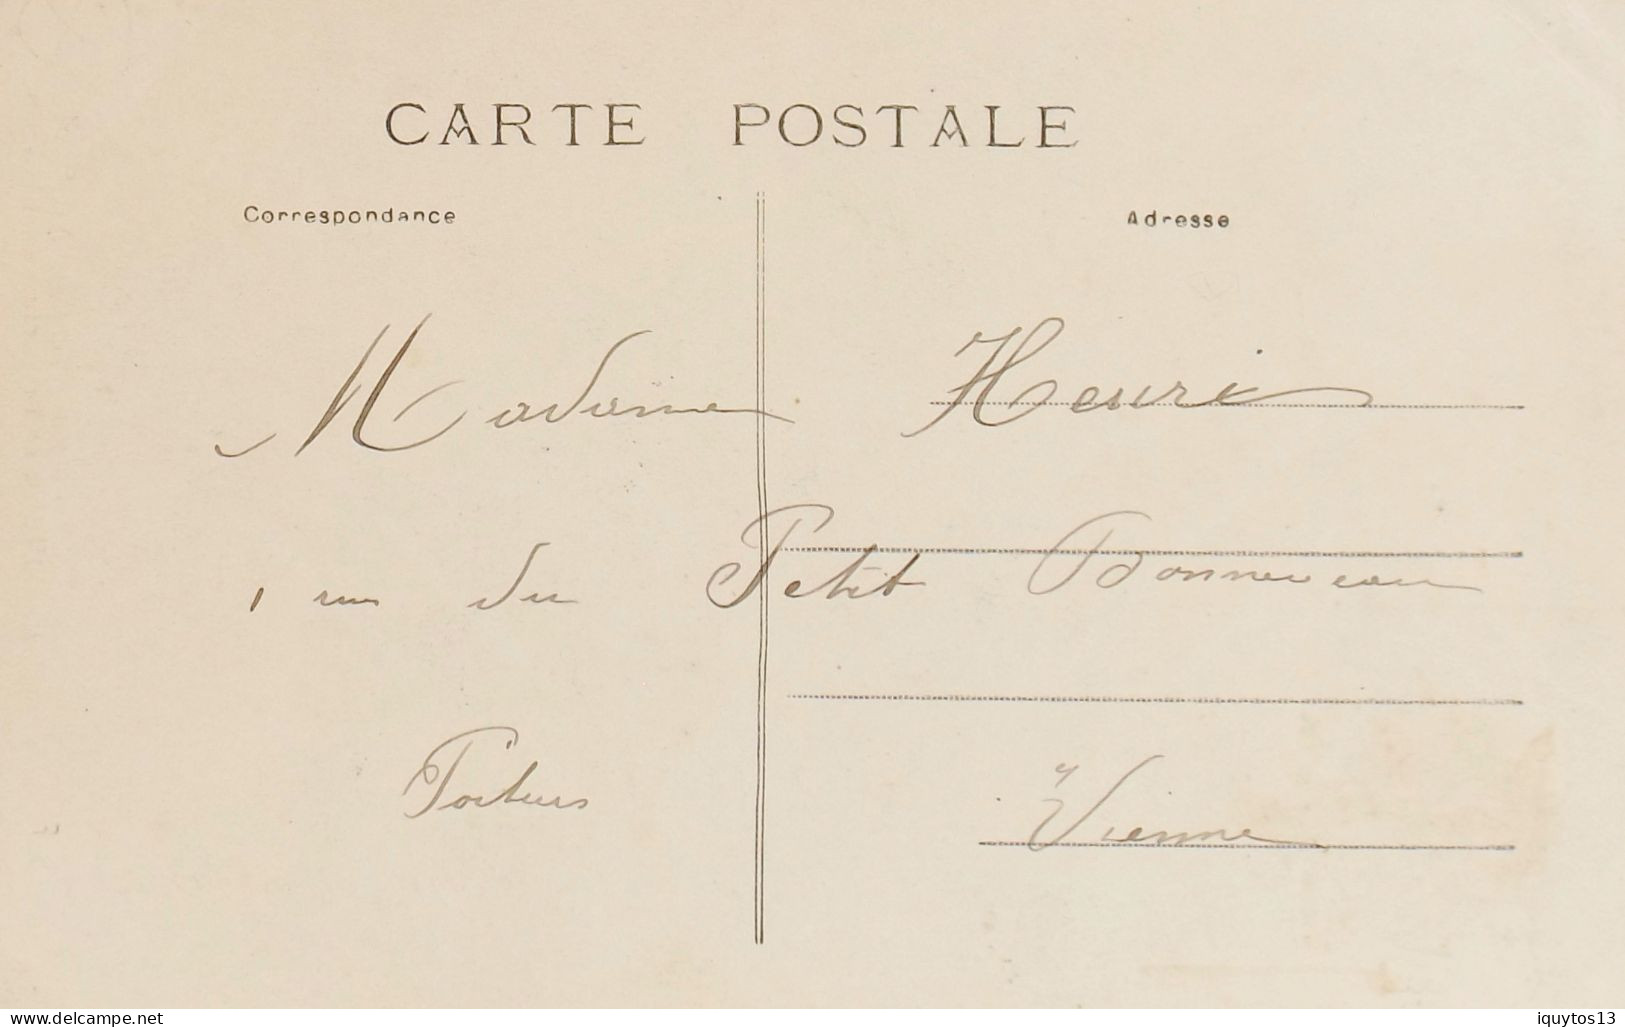 CARTE POSTALE
Correspondance Adresse
Madame Henri
1 rue du Petit Bonneveau
Poitiers
Vienne
www.delcampe.net iquytos13